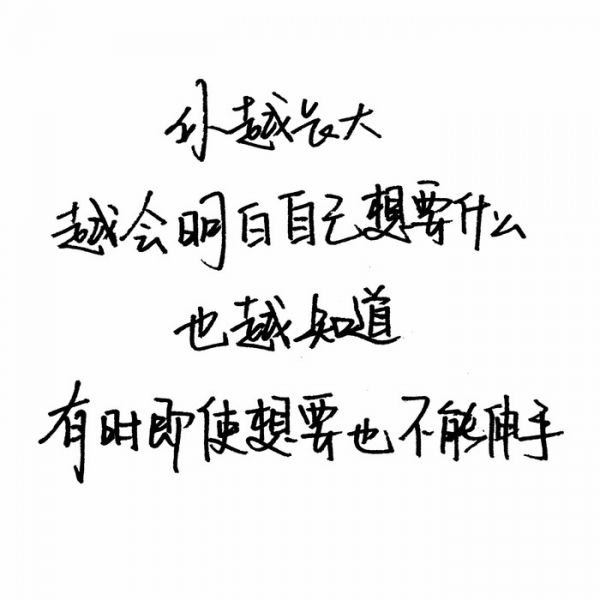 你越长大
越会明白自己想要什么
也越知道
有时即使想要也不能伸手